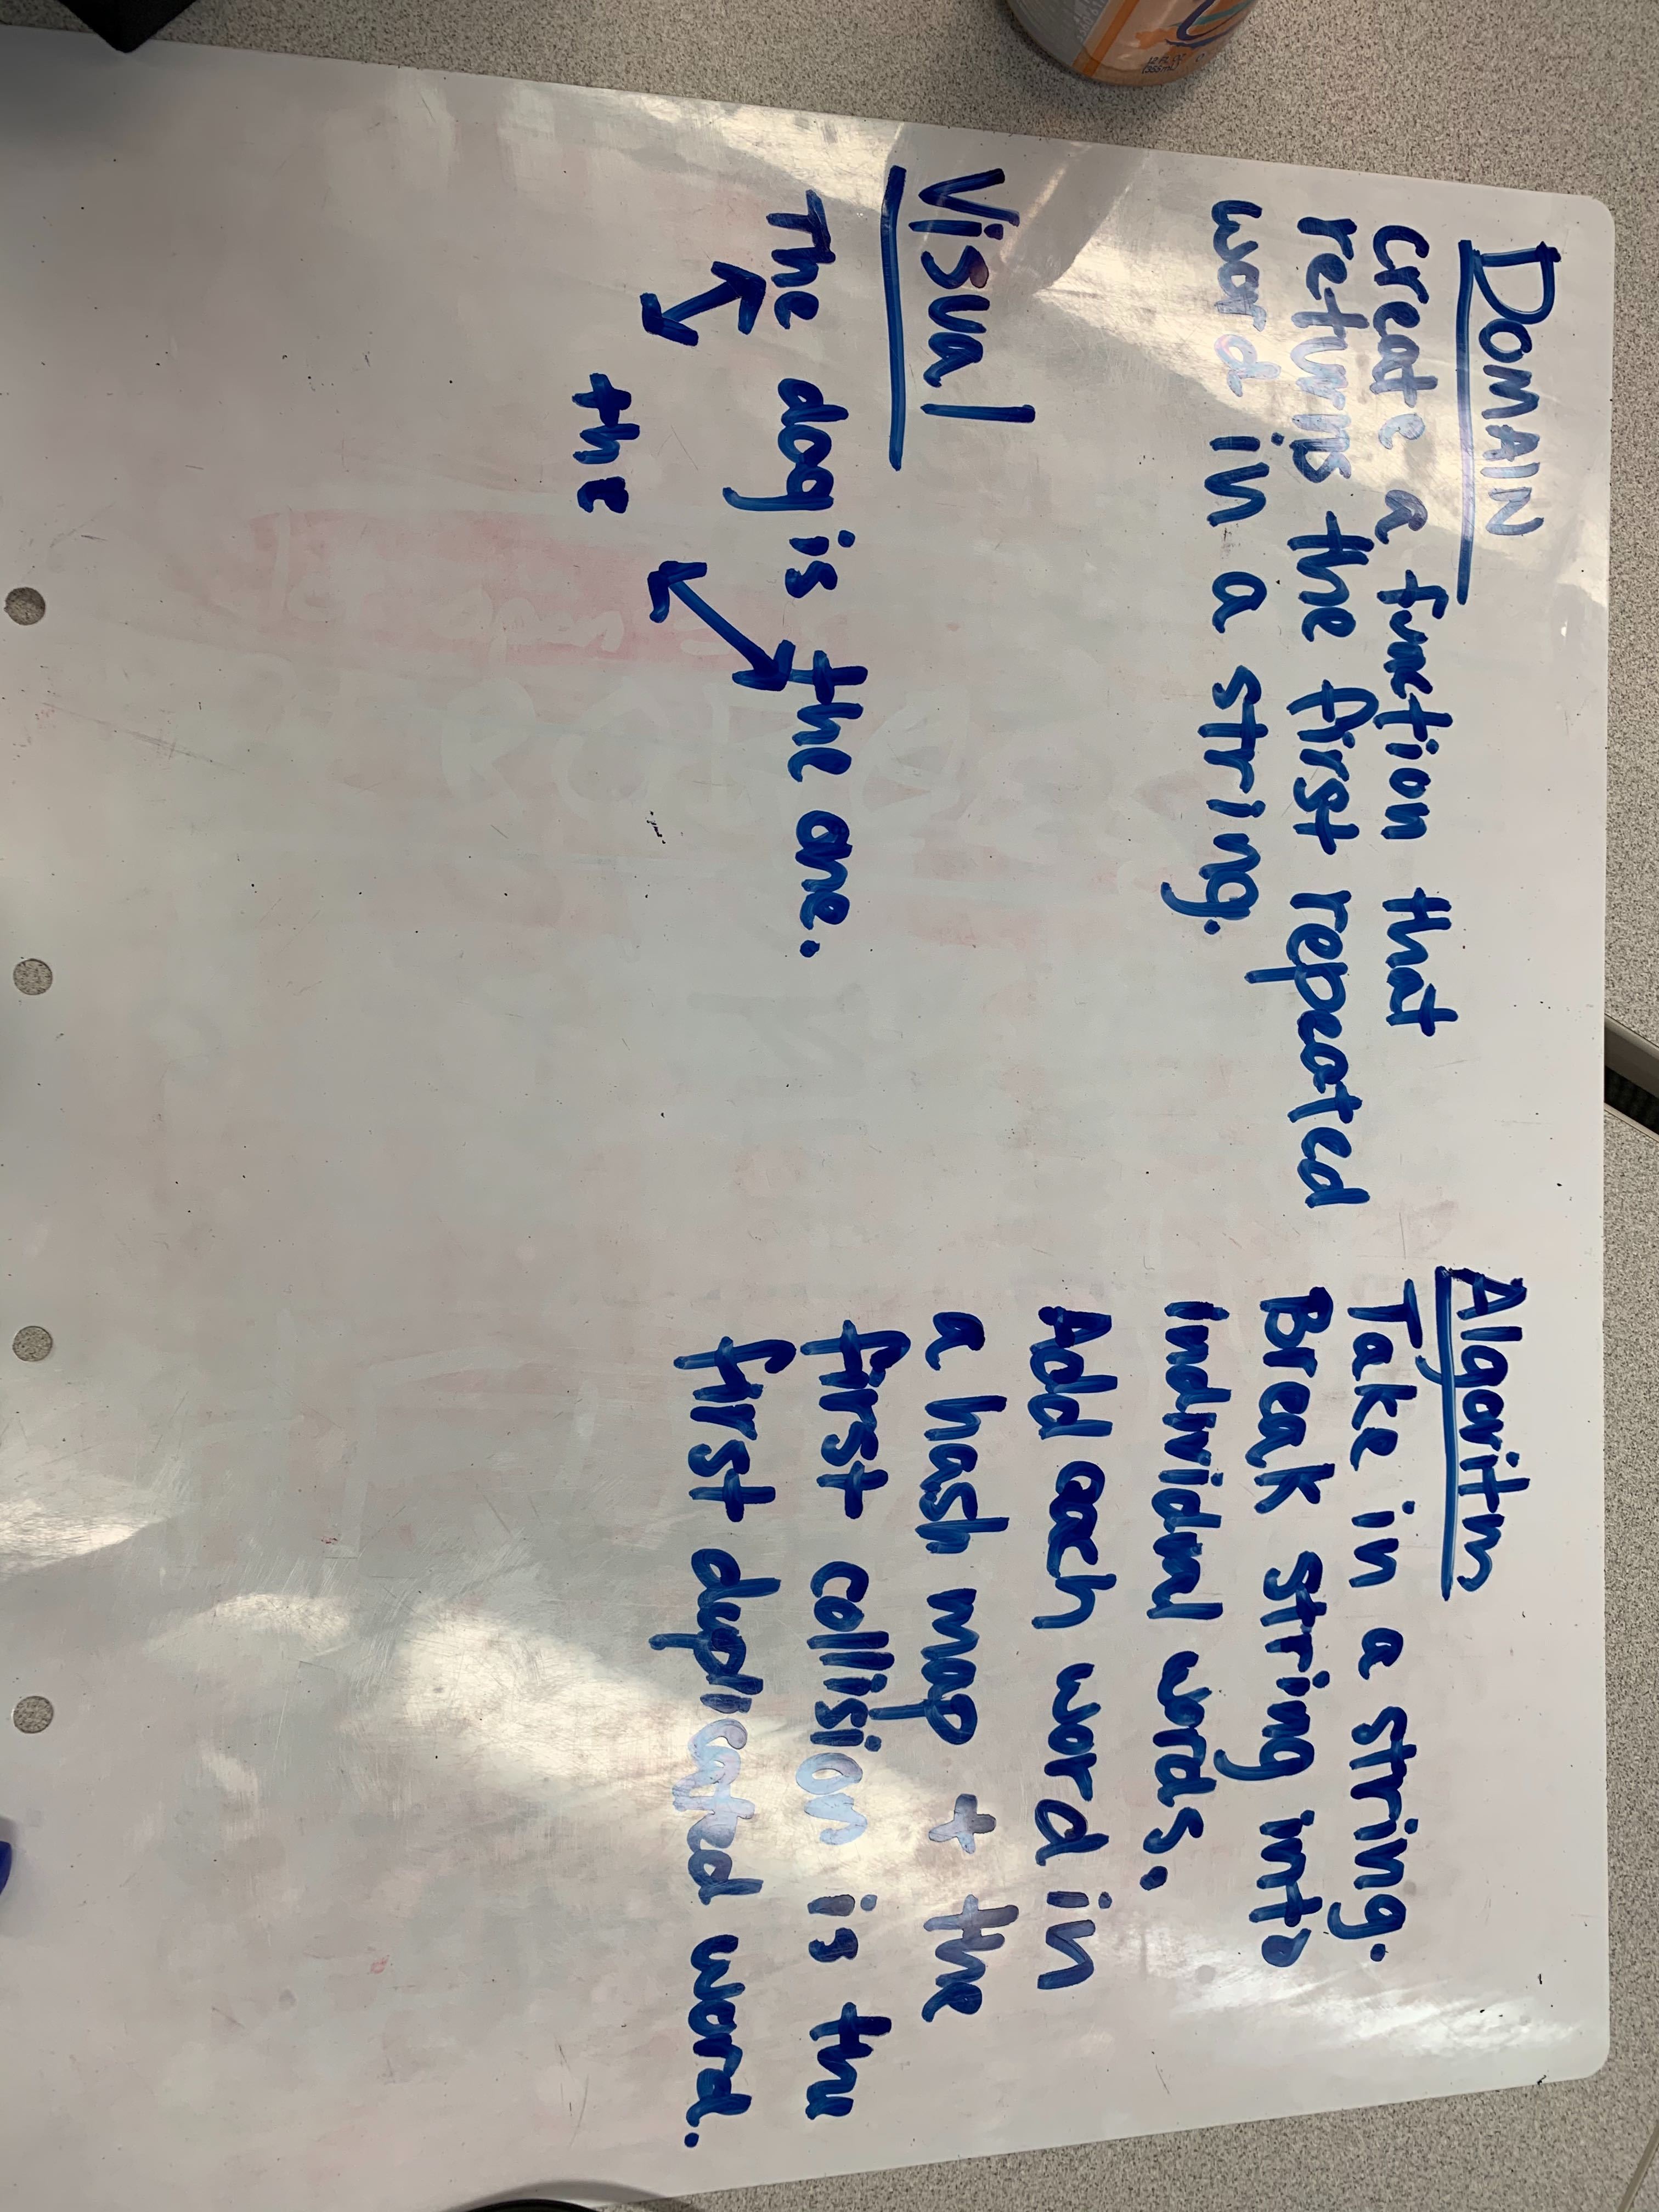 DOMAIN
create a function that
returns the first repeated
word in a string.
Visual
The dog is the one.
the
Algorithm
Take in a string.
Break string into
individual words.
Add each word in
a hash map + the
first collision is the
first duplicated word.